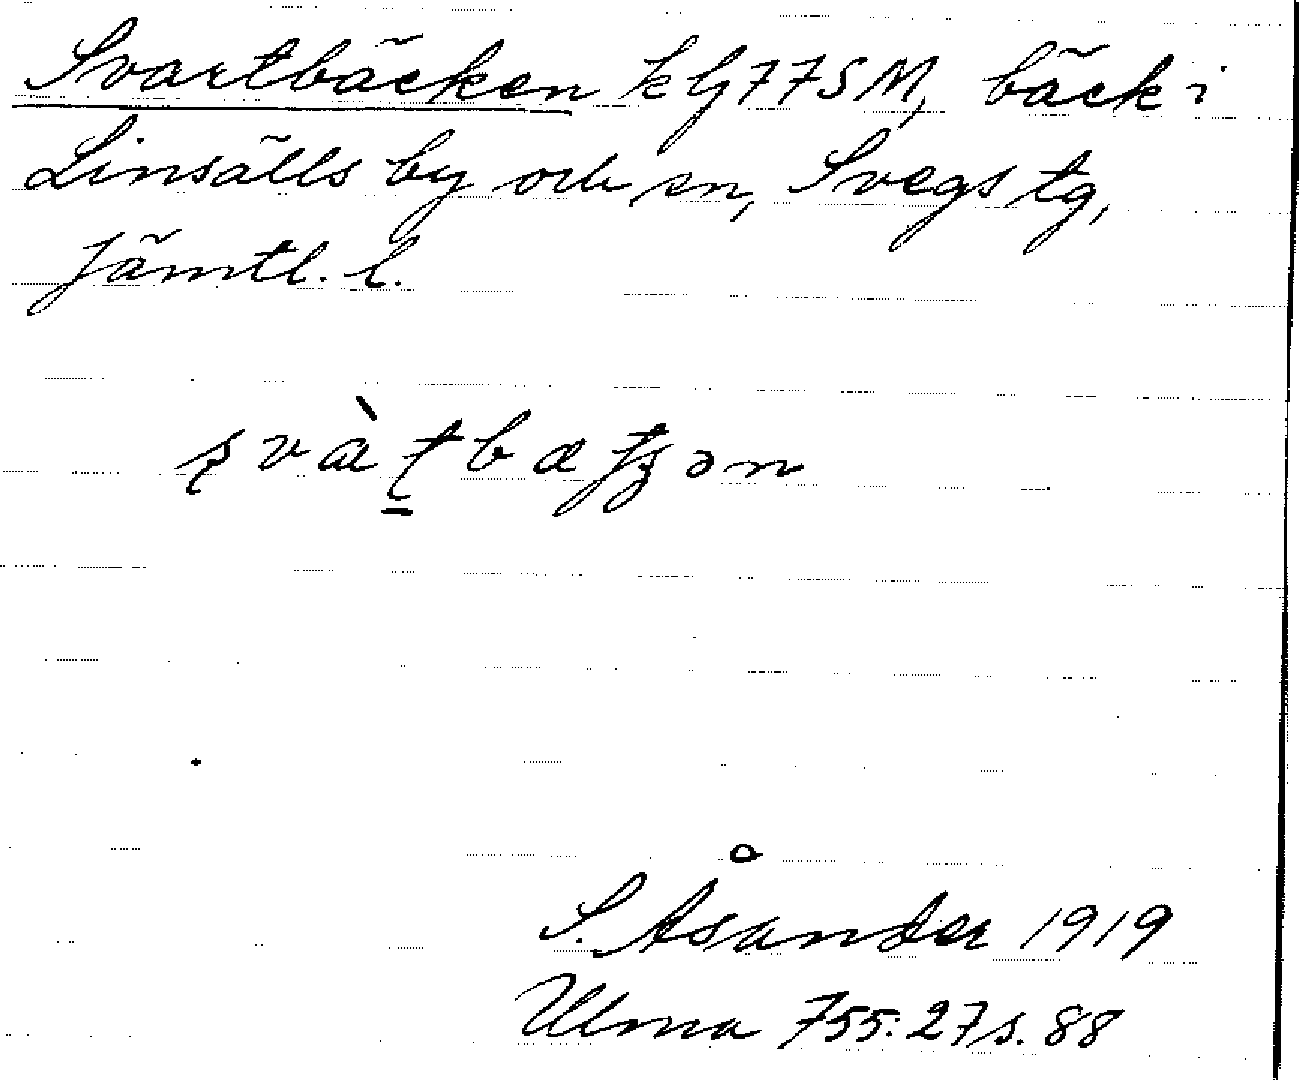 Svartbäcken k Gj77SM, bäck i
Linsälls by och sn, Svegs tg,
Jämtl. l.
S. Åsander 1919
Ulma 755:27 s. 88